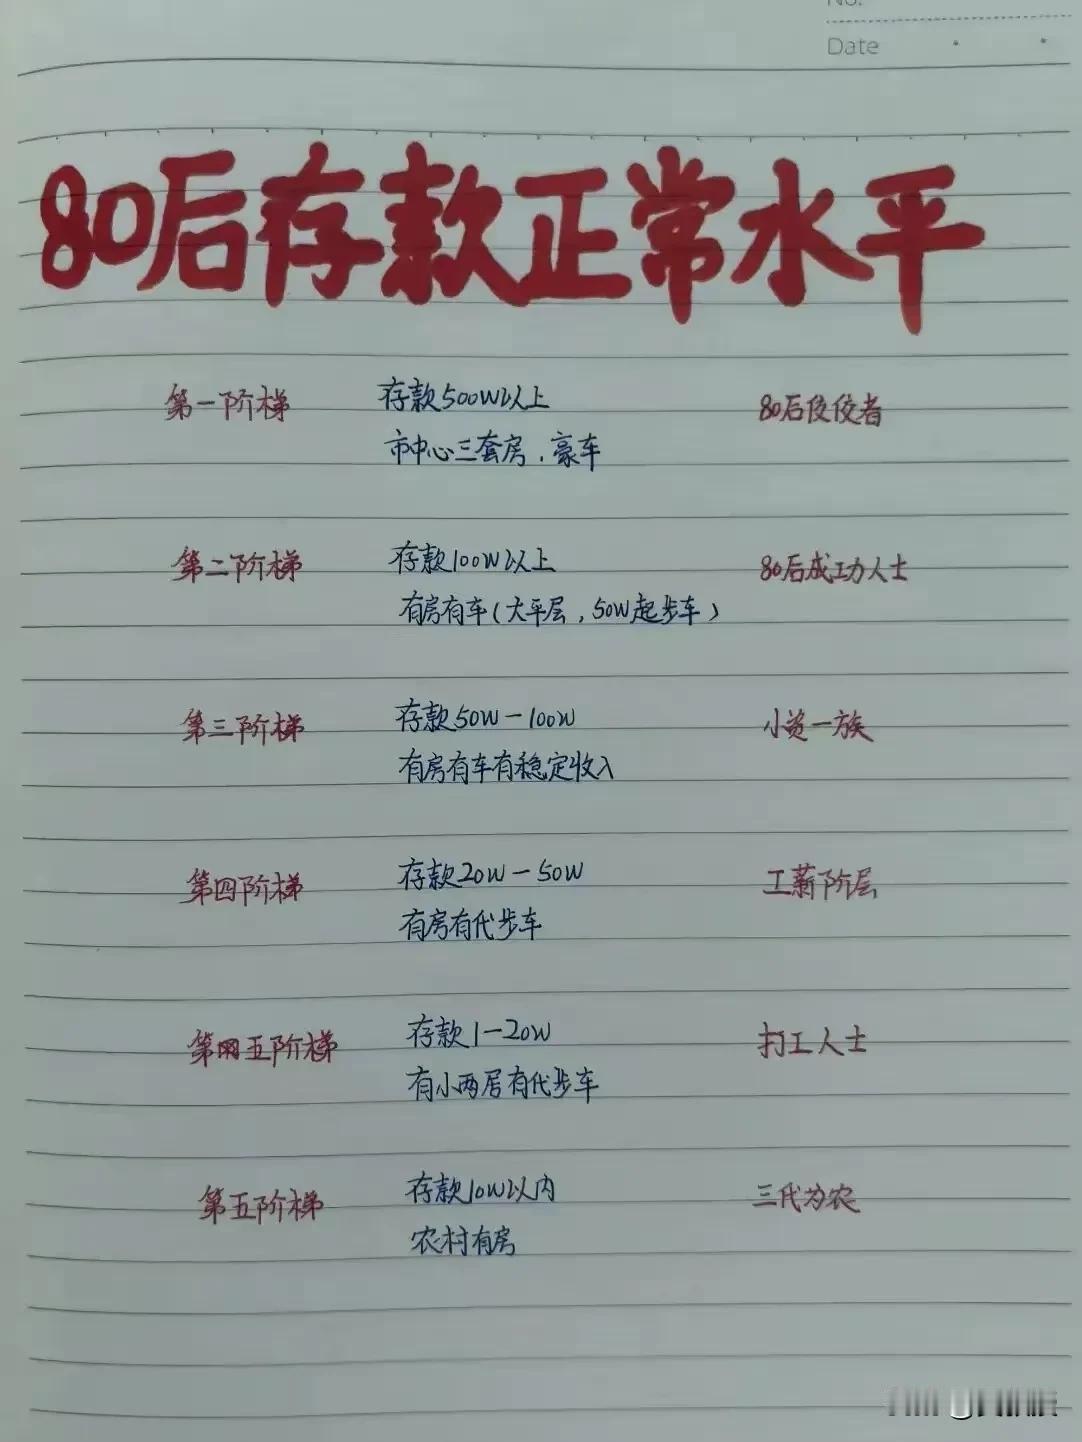 No.
Date
80后存款正常水平
第一阶梯 存款500W以上 80后佼佼者
市中心三套房,豪车
第二阶梯 存款100W以上 80后成功人士
有房有车(大平层,50W起步车)
第三阶梯 存款50W-100W 小资一族
有房有车有稳定收入
第四阶梯 存款20W-50W 工薪阶层
有房有代步车
第五阶梯 存款1-20W 打工人士
有小两居有代步车
第五阶梯 存款10W以内 三代为农
农村有房